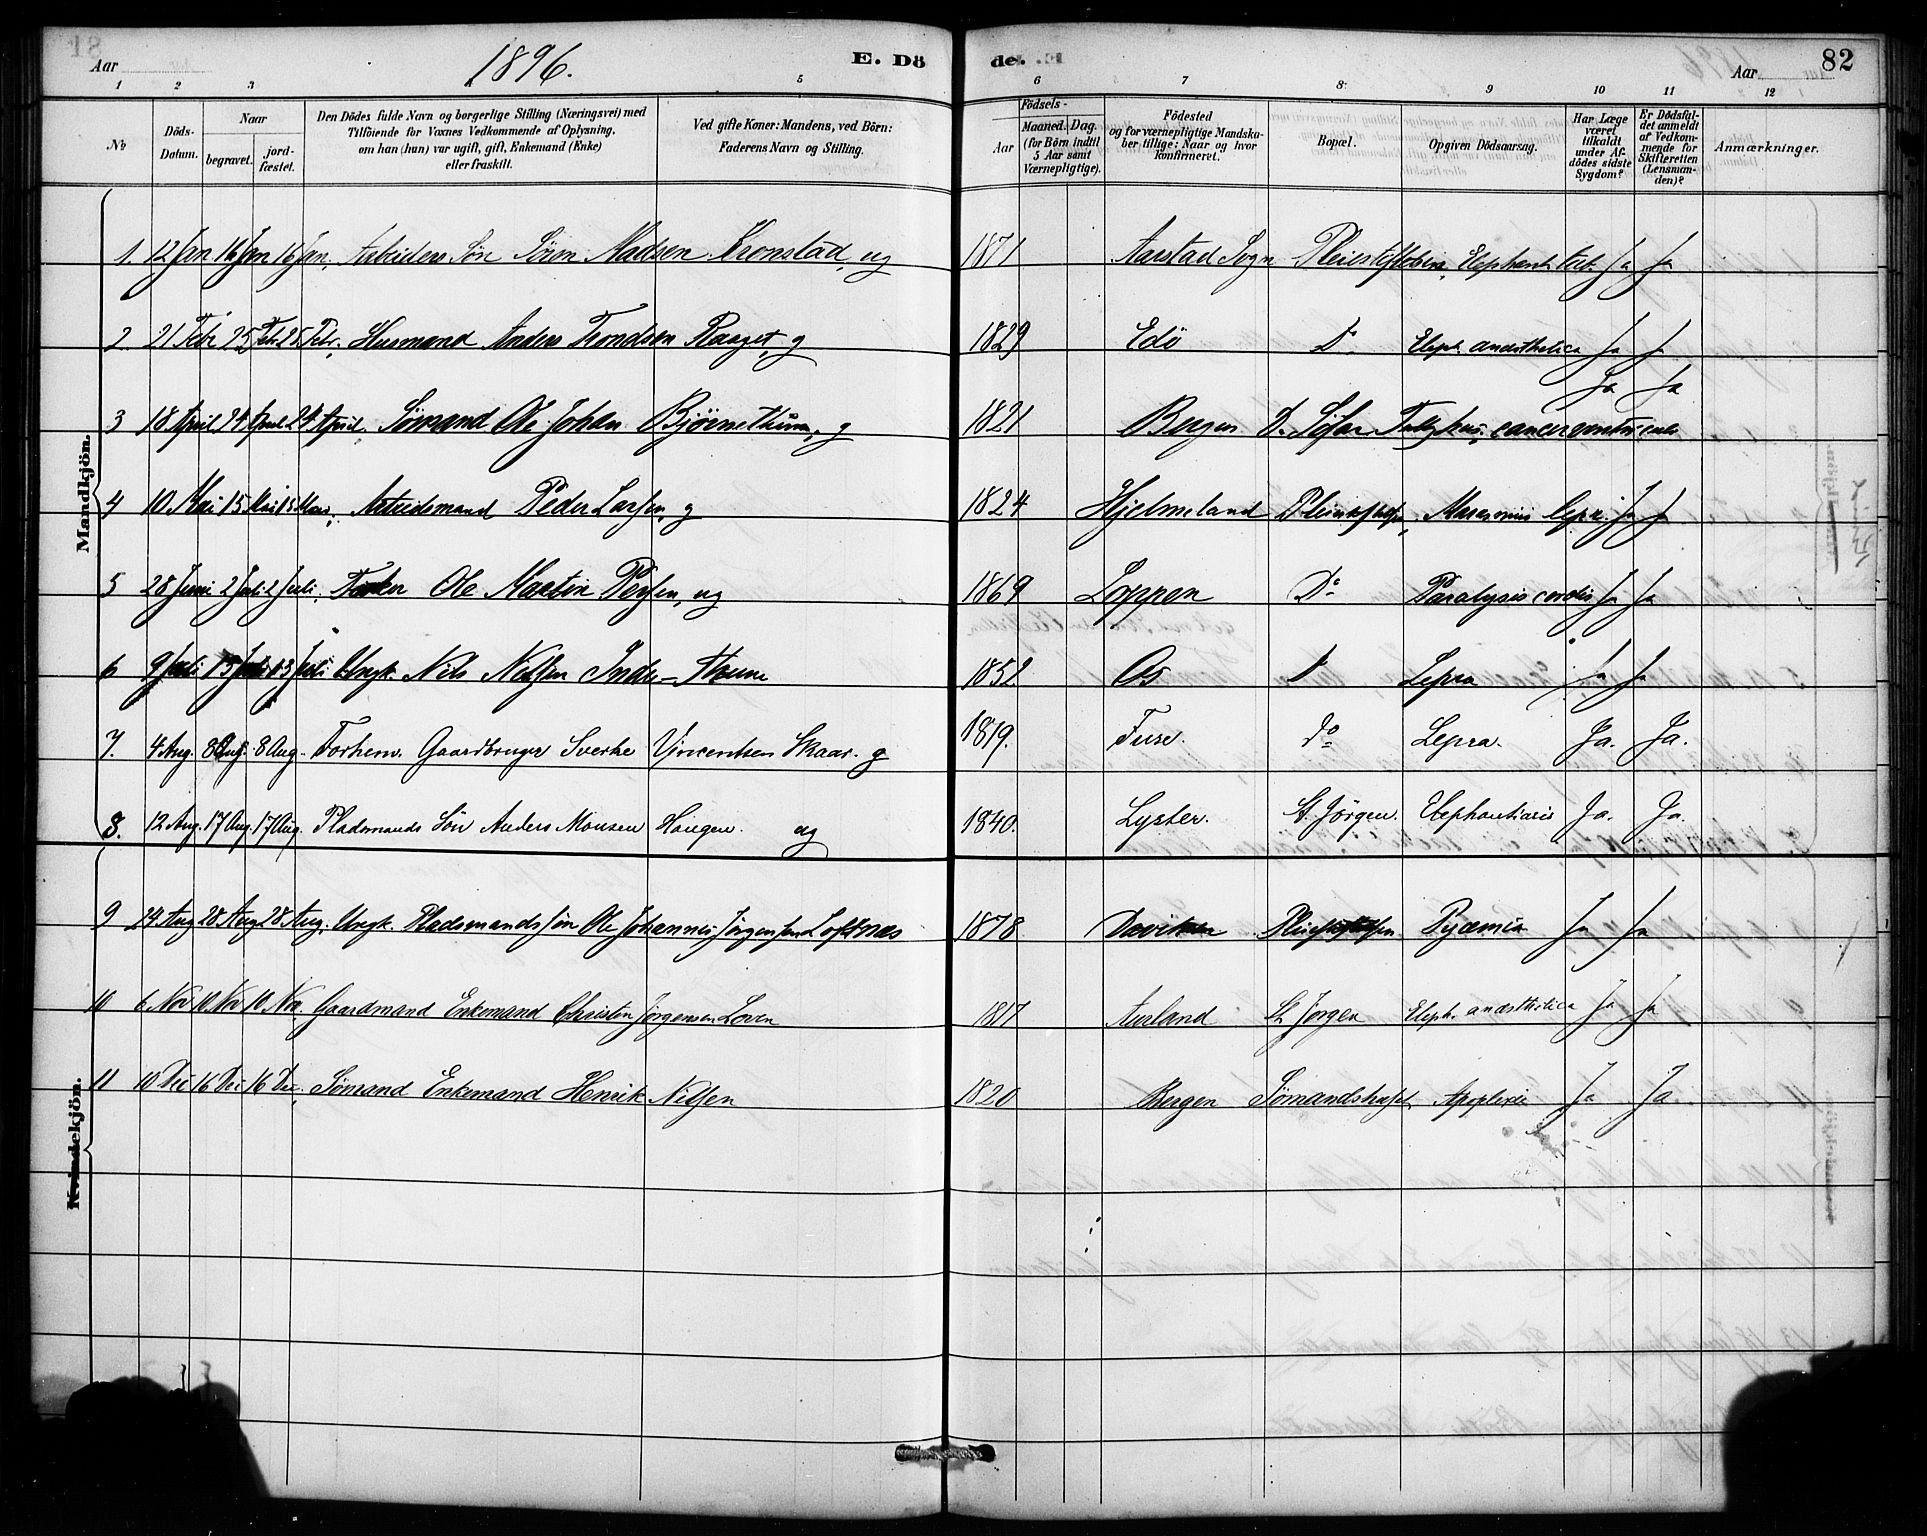 Aar 1896. E. Döde. Aar 82
1 2 3 5 6 7 8 9 10 11 12
No
Döds-Datum.
Naar
begravet.
jord-fæstet.
Den Dödes fulde Navn og borgerlige Stilling (Næringsvei) med
Tilföiende for Voxnes Vedkommende af Oplysning,
om han (hun) var ugift, gift, Enkemand (Enke)
eller fraskilt.
Ved gifte Koner: Mandens, ved Börn:
Faderens Navn og Stilling.
Födsels-
Aar
Maaned. Dag.
(for Börn indtil
5 Aar samt
Værnepligtige).
Födested
og for værnepligtige Mandska-
ber tillige: Naar og hvor
konfirmeret.
Bopæl.
Opgiven Dödsaarsag.
Har Læge
været
tilkaldt
under Af-
dödes sidste
Sygdom?
Er Dödsfal-
det anmeldt
af Vedkom-
mende for
Skifteretten
(Lensman-
den)?
Anmærkninger.
Mandkjön.
1. 12 Jan 16 Jan 16 Jan. Arbeiders Sön Sören Madsen Kronstad, ug 1871 Aarstad Sogn Pleiestiftelsen, Elephant. tub. Ja Ja
2 21 Febr 25 Febr 25 Febr. Husmand Anders Trondsen g 1829 Edö Do Eleph. anæsthetica Ja Ja
3 18 April 24 April 24 April. Sömand Ole Johan g 1821 Bergen cancer ventriculi Ja Ja
4 10 Mai 15 Mai 15 Mai, Arbeidsmand Peder Larsen, g 1824 Hjelmeland Marasmus lepr. Ja Ja
5 28 Juni 2 Juli 2 Juli, Ole Martin ug 1869 Loppen Do Paralysis cordis Ja Ja
6 9 Juli 13 Juli 13 Juli Ungk. Nils Nilsen 1852 Os Do Lepra Ja Ja
7. 4 Aug. 8 Aug. 8 Aug. Forhenv. Gaardbruger Sverke Vincentsen Skaar. g 1819. Fuse. Do Lepra. Ja. Ja.
8. 12 Aug. 17 Aug. 17 Aug. Pladsmands Sön Anders Monsen Haugen. ug 1840. Lyster. St. Jörgen. Elephantiasis Ja. Ja.
9 24 Aug 28 Aug 28 Aug. Ungk. Pladsmandssön Ole Johannes Jörgensen Loftnæs 1878 Daviken Pyæmia Ja Ja
10 6 Nov 10 Nov 10 Nov. Gaardmand Enkemand Christen Jörgensen Loven 1817 Aurland St Jörgen Eleph. anæsthetica Ja Ja
Kvindekjön.
11 10 Dec 16 Dec 16 Dec. Sömand Enkemand Henrik Nilsen 1820 Bergen Apoplexie Ja Ja